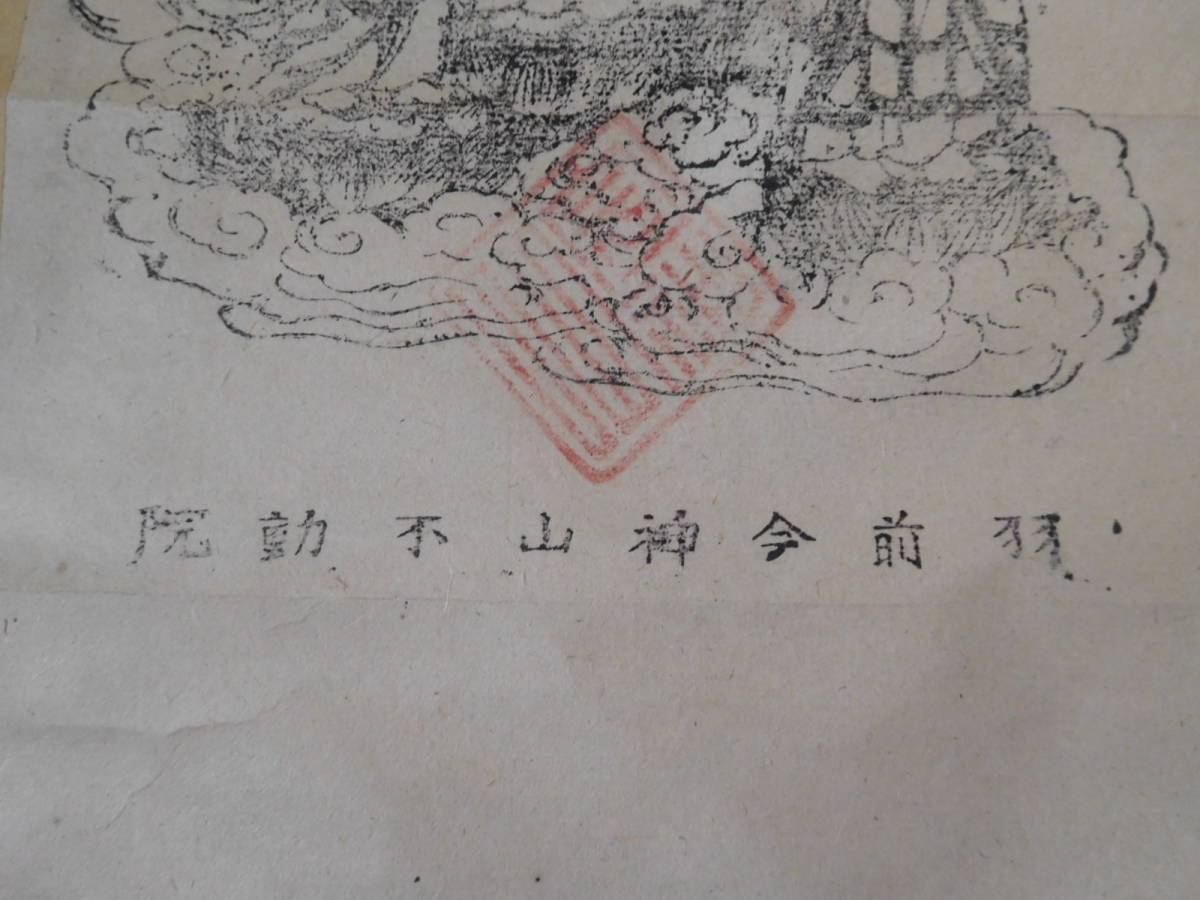 羽前今神山不動院